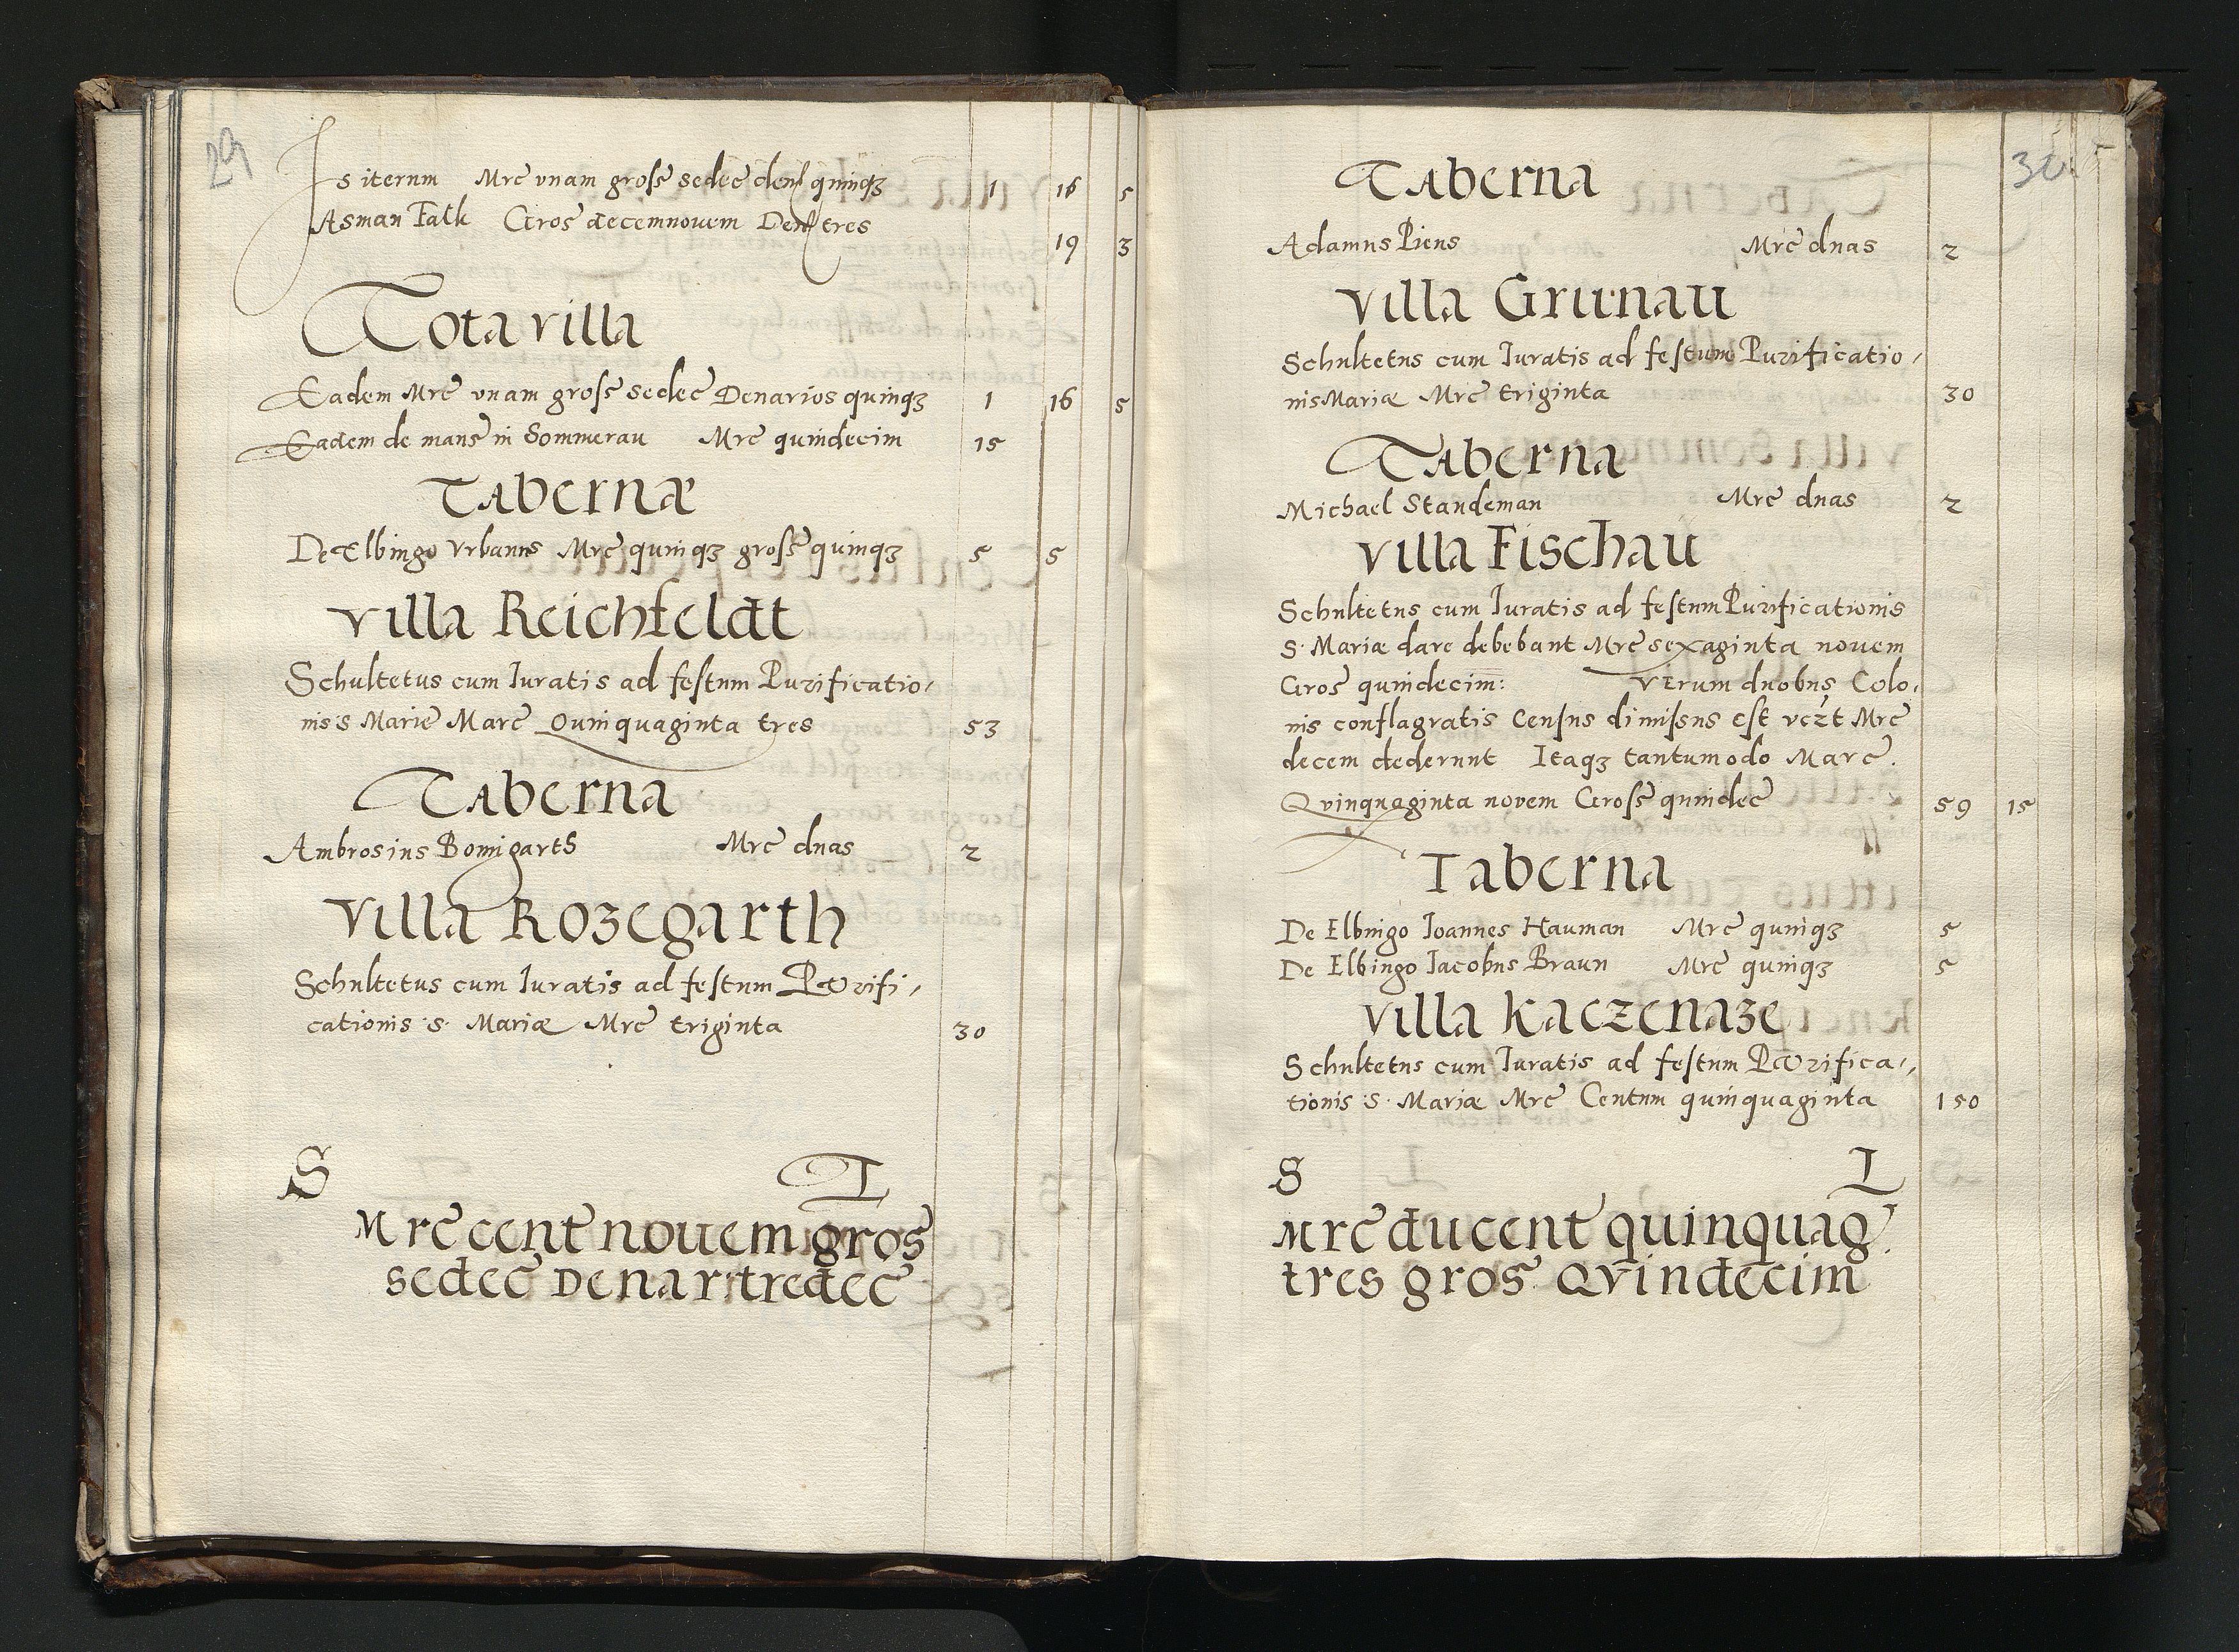 29
Is iterum Mrc vnam gross sedec den quinqz 1 16 5
Asman Falk Gros decemnouem Den tres 19 3
Tota villa
Eadem Mrc vnam gross sedec Denarios quinqz 1 16 5
Eadem de mans in Sommerau Mrc quindecim 15
Tabernæ
De Elbingo Vrbanus Mrc quinqz gross quinqz 5 5
Villa Reichfeldt
Schultetus cum Iuratis ad festum Purificatio,
nis s Marie Marc Quinquaginta tres 53
Taberna
Ambrosius Bomgarth Mrc duas 2
Villa Rozegarth
Schultetus cum Iuratis ad festum Purifi,
cationis s. Mariæ Mrc triginta 30
S I
Mrc cent nouem gros
sedec Denar tredec
30
Taberna
Adamus Piens Mrc duas 2
Villa Grunau
Schultetus cum Iuratis ad festum Purificatio,
nis Mariæ Mrc triginta 30
Taberna
Michael Standeman Mrc duas 2
Villa Fischau
Schultetus cum Iuratis ad festum Purificationis
s. Mariæ dare debebant Mrc sexaginta nouem
Gros quindecim: Verum duobus Colo,
nis conflagratis Census dimissus est vczt Mrc
decem dederunt Itaqz tantumodo Marc.
Quinquaginta novem Gross quindec 59 15
Taberna
De Elbingo Ioannes Hauman Mrc quinqz 5
De Elbingo Iacobus Braun Mrc quinqz 5
Villa Kaczenaze
Schultetus cum Iuratis ad festum Purifica,
tionis s. Mariæ Mrc Centum quinquaginta 150
S I
Mrc ducent quinquag
tres gros Qvindecim